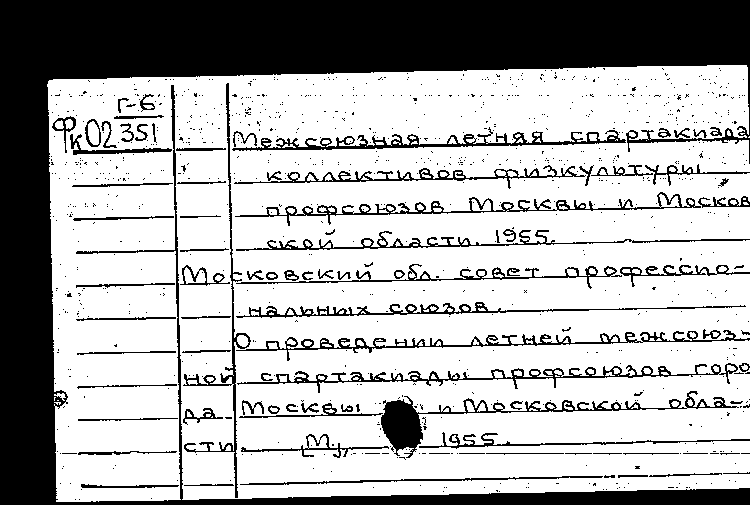 Г-6
Фк02 351
Межсоюзная летняя спартакиада
коллективов физкультуры
профсоюзов Москвы и Москов
ской области. 1955.
Московский обл. совет профессио-
нальных союзов.
О проведении летней межсоюз-
ной спартакиады профсоюзов горо
да Москвы и Московской обла-
сти. [М.], 1955.